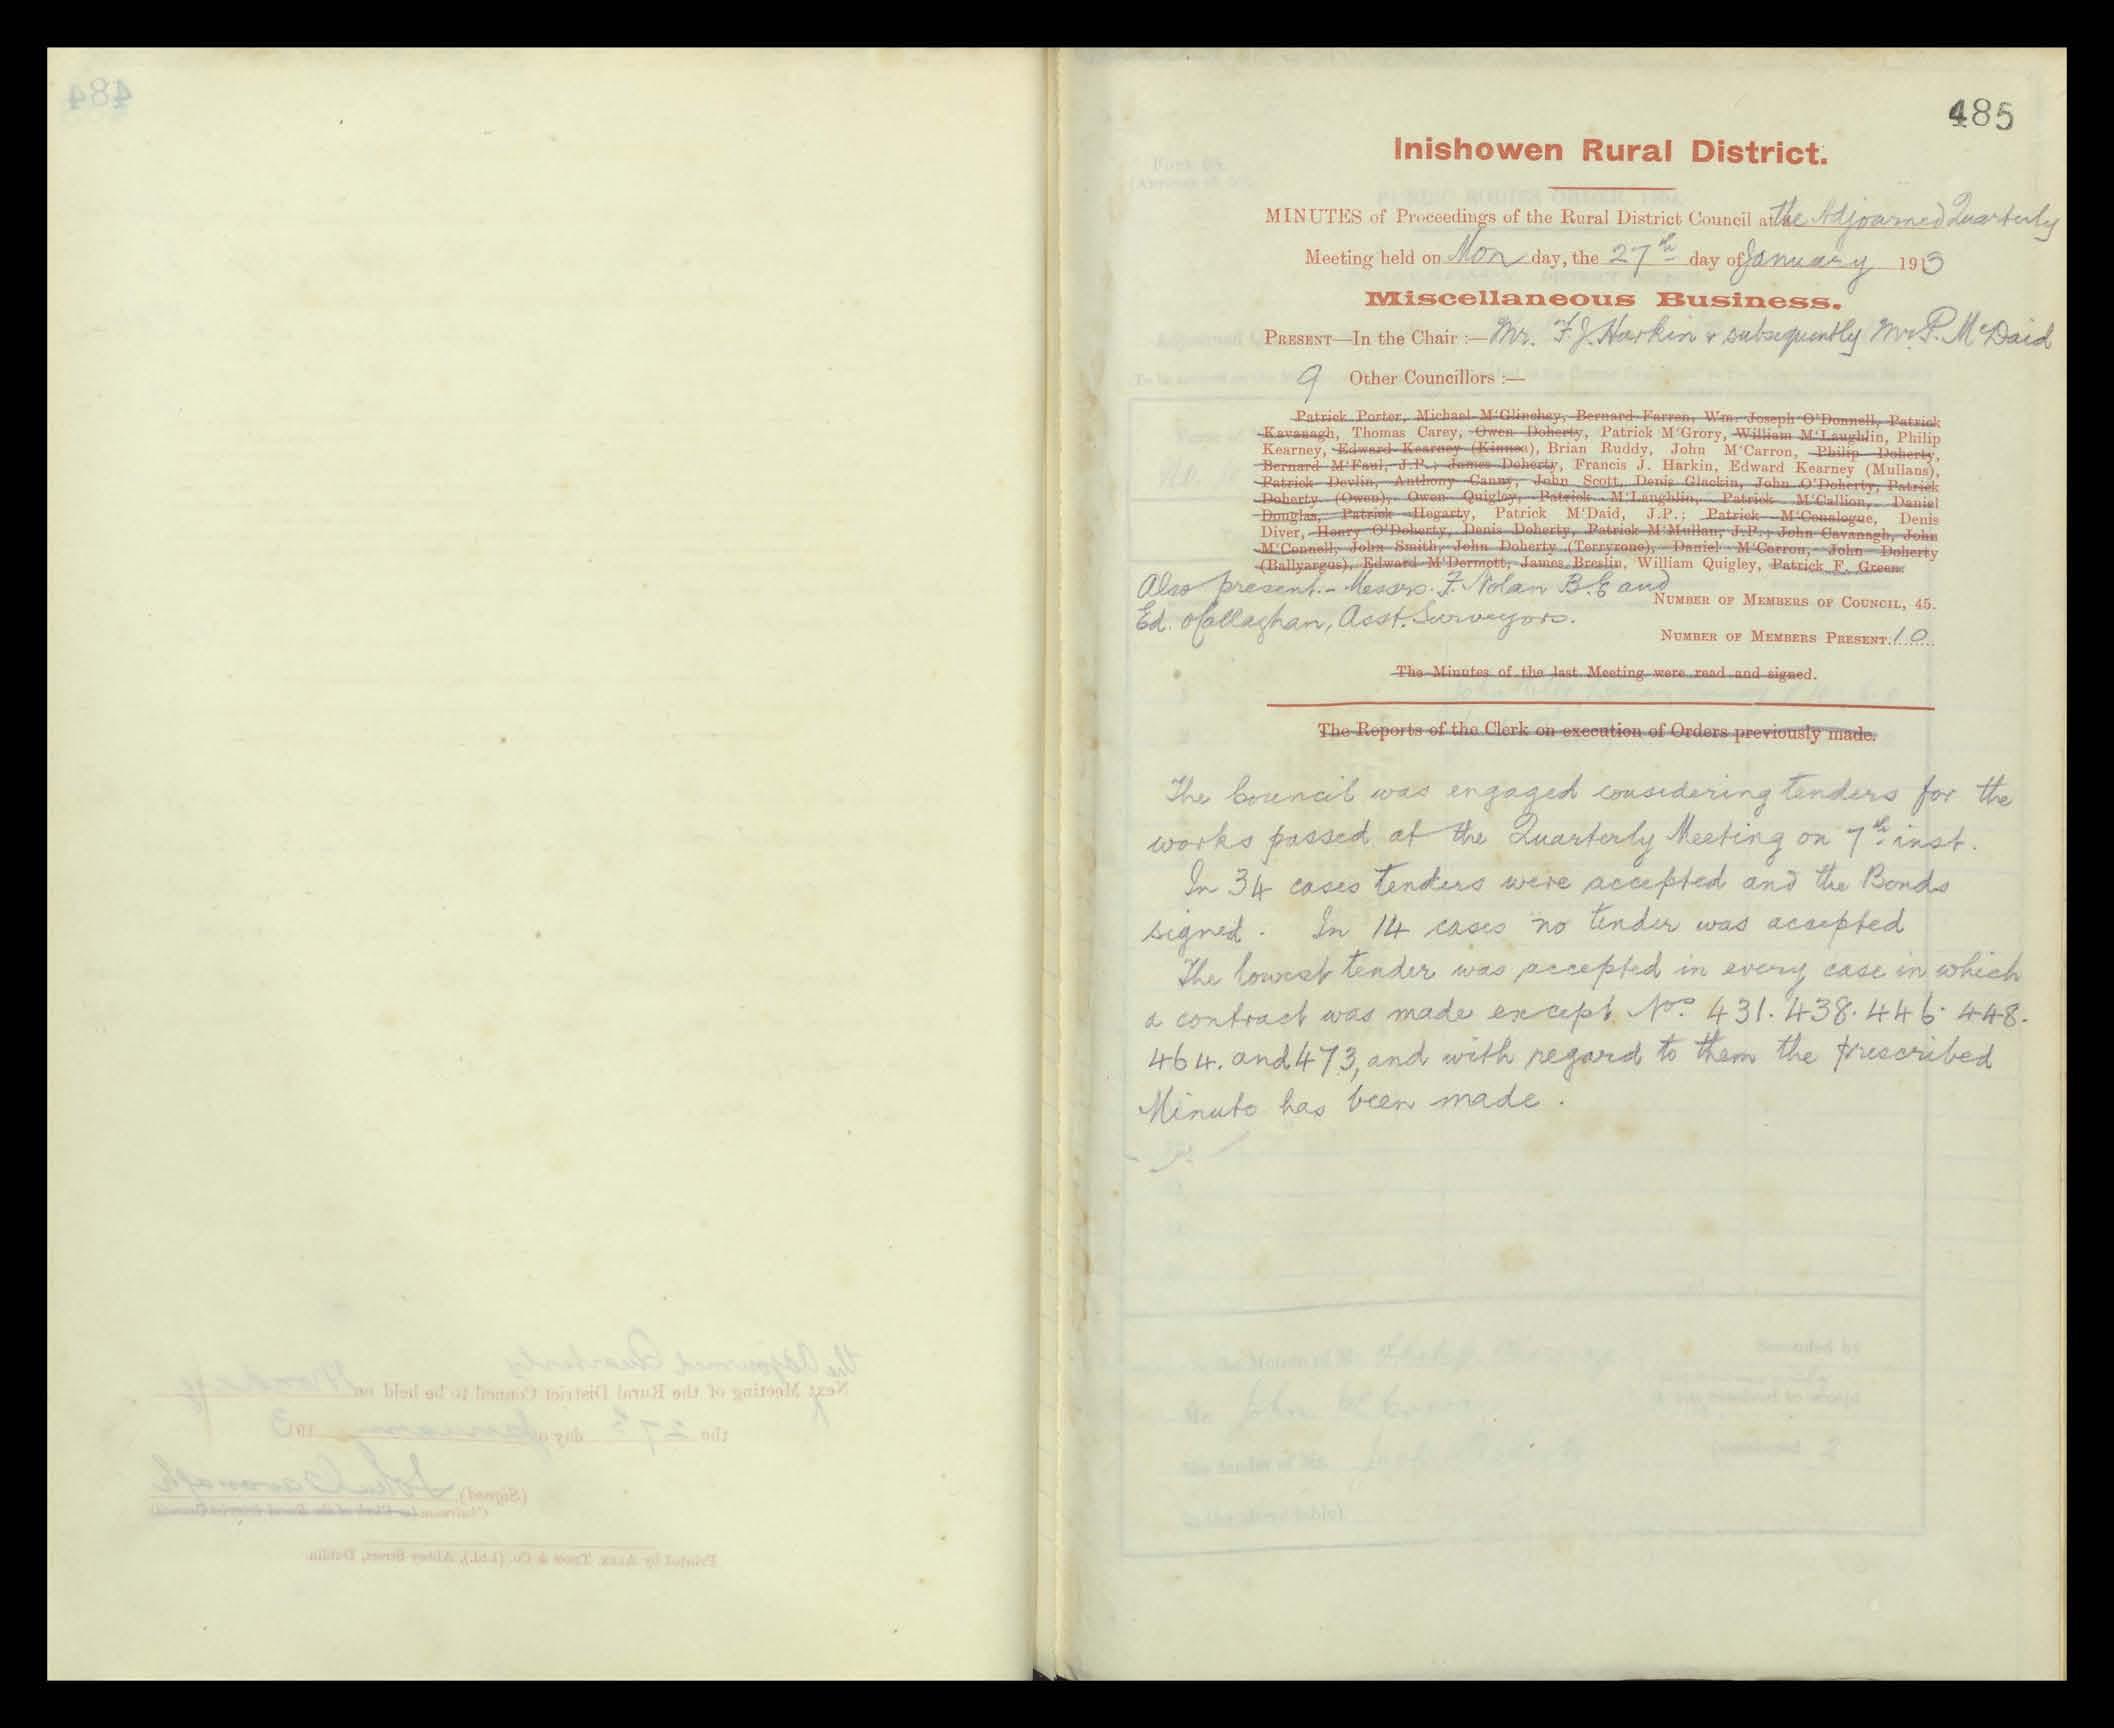 485
Inishowen Rural District.
MINUTES of Proceedings of the Rural District Council at the Adjourned Quarterly
Meeting held on Mon day, the 27th day of January 1913
Miscellaneous Business.
PRESENT—In the Chair :— Mr. F. J. Harkin & subsequently Mr P. McDaid
9 Other Councillors :—
Patrick Porter, Michael M'Glinchey, Bernard Farren, Wm. Joseph O'Donnell, Patrick
Kavanagh, Thomas Carey, Owen Doherty, Patrick M'Grory, William M'Laughlin, Philip
Kearney, Edward Kearney (Kinnea), Brian Ruddy, John M'Carron, Philip Doherty,
Bernard M'Faul, J.P.; James Doherty, Francis J. Harkin, Edward Kearney (Mullans),
Patrick Devlin, Anthony Canny, John Scott, Denis Glackin, John O'Doherty, Patrick
Doherty (Owen), Owen Quigley, Patrick M'Laughlin, Patrick M'Callion, Daniel
Douglas, Patrick Hegarty, Patrick M'Daid, J.P.; Patrick M'Conalogue, Denis
Diver, Henry O'Doherty, Denis Doherty, Patrick M'Mullan, J.P.; John Cavanagh, John
M'Connell, John Smith, John Doherty (Terryrone), Daniel M'Carron, John Doherty
(Ballyargus), Edward M'Dermott, James Breslin, William Quigley, Patrick F. Green.
Also present.- Messrs. F. Nolan B.E and
Ed. O'Callaghan, Asst. Surveyors.
NUMBER OF MEMBERS OF COUNCIL, 45.
NUMBER OF MEMBERS PRESENT. 10
The Minutes of the last Meeting were read and signed.
The Reports of the Clerk on execution of Orders previously made.
The Council was engaged considering tenders for the
works passed at the Quarterly Meeting on 7th inst.
In 34 cases tenders were accepted and the Bonds
signed. In 14 cases no tender was accepted
The lowest tender was accepted in every case in which
a contract was made except Nos. 431. 438. 446. 448.
464. and 473, and with regard to them the prescribed
Minute has been made.